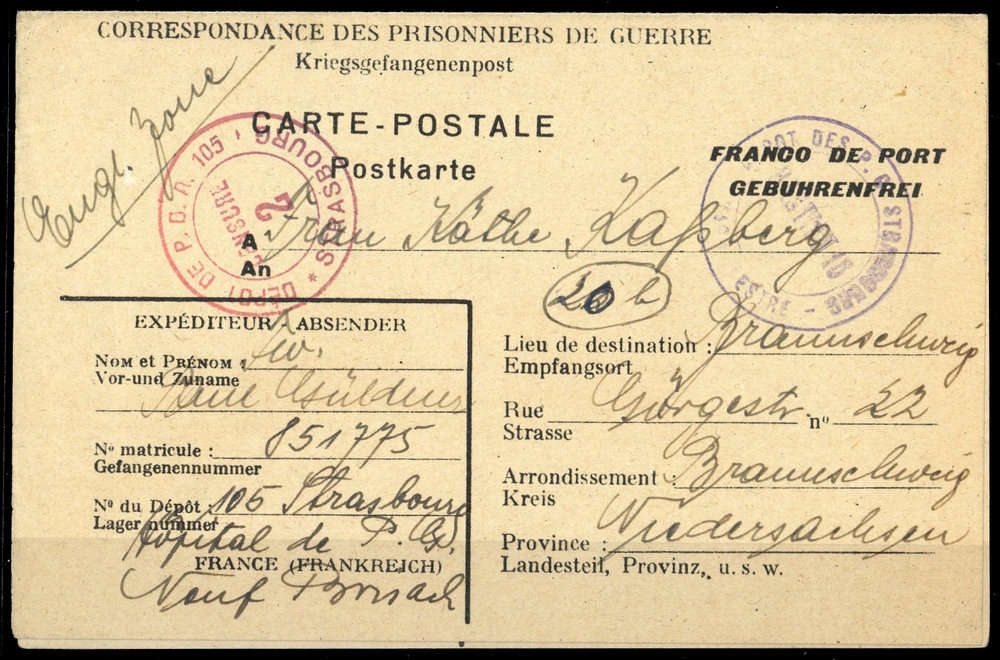 CORRESPONDANCE DES PRISONNIERS DE GUERRE
Kriegsgefangenenpost
Engl. Zone
CARTE-POSTALE
Postkarte
FRANCO DE PORT
GEBUHRENFREI
DÉPOT DE P.D.A. 105 * STRASBOURG *
CENSURE
2
DES P. G. STRASBOURG
A Frau Käthe Kaßberg
An
20 b
EXPÉDITEUR - ABSENDER
NOM et PRÉNOM :
Vor-und Zuname
N° matricule : 851775
Gefangenennummer
N° du Dépôt: 105 Strasbourg
Lager nummer
Hôpital de P. G.
FRANCE (FRANKREICH)
Neuf Brisach
Lieu de destination : Braunschweig
Empfangsort
Rue Görgestr. n° 22
Strasse
Arrondissement : Braunschweig
Kreis
Province : Niedersachsen
Landesteil, Provinz, u. s. w.